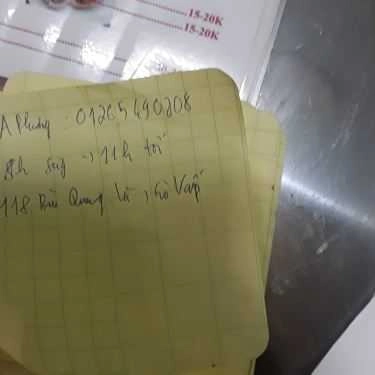 15-20K
15-20K
A Phương : 01265490208
8h sáng → 11h tối
118 Bùi Quang Là, Gò Vấp